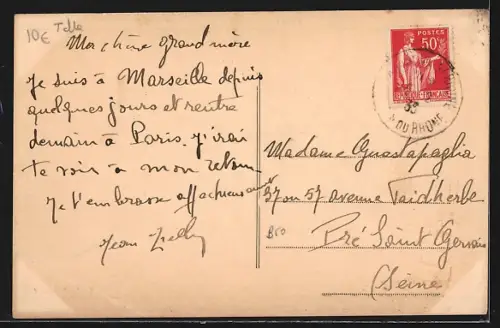 10€
Ma chère grand'mère
Je suis à Marseille depuis
quelques jours et rentre
demain à Paris. J'irai
te voir à mon retour.
Je t'embrasse affectueusement
Jean
POSTES
50c
REPUBLIQUE FRANÇAISE
DU RHONE
Madame
37 ou 57 avenue Faidherbe
Pré Saint Gervais
(Seine)